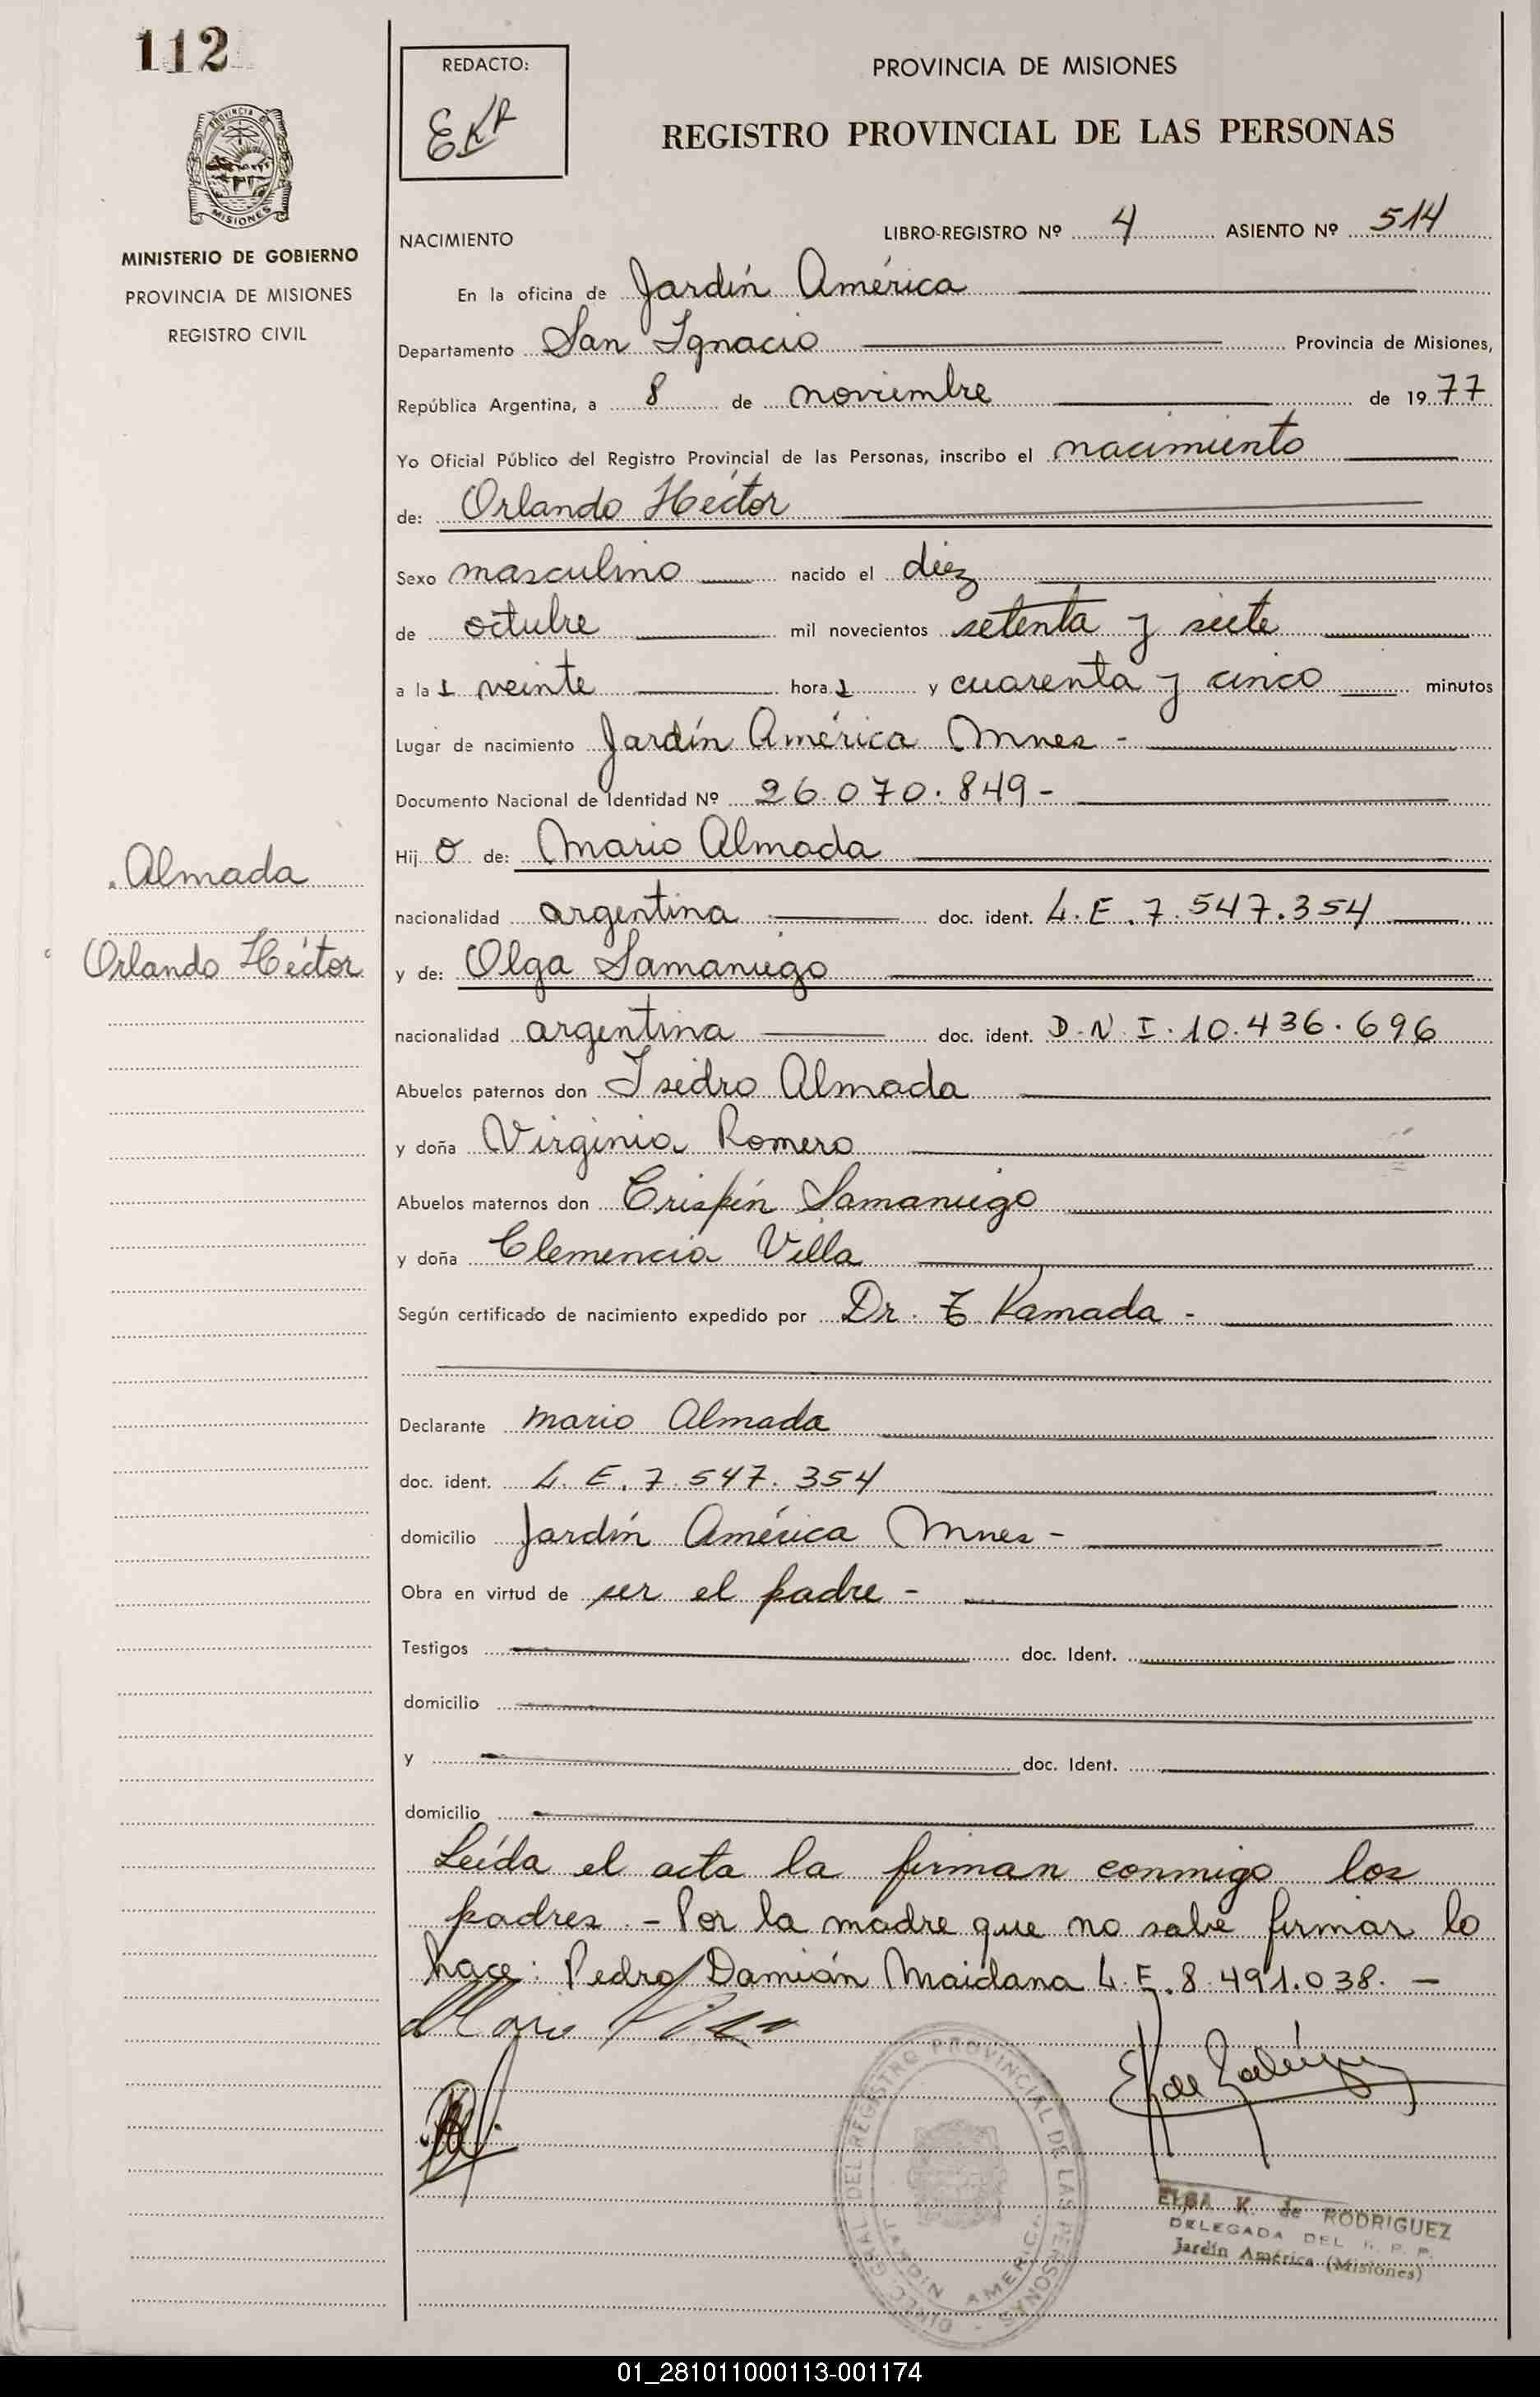 112
REDACTO:
EKR
PROVINCIA DE MISIONES
REGISTRO PROVINCIAL DE LAS PERSONAS
PROVINCIA DE
MISIONES
MINISTERIO DE GOBIERNO
PROVINCIA DE MISIONES
REGISTRO CIVIL
NACIMIENTO
LIBRO-REGISTRO Nº 4 ASIENTO Nº 514
En la oficina de Jardín América
Departamento San Ignacio Provincia de Misiones,
República Argentina, a 8 de noviembre de 1977
Yo Oficial Público del Registro Provincial de las Personas, inscribo el nacimiento
de: Orlando Héctor
Sexo masculino nacido el diez
de octubre mil novecientos setenta y siete
a las veinte horas y cuarenta y cinco minutos
Lugar de nacimiento Jardín América Mnes -
Documento Nacional de Identidad Nº 26.070.849-
Hijo de: Mario Almada
Almada
Orlando Héctor
nacionalidad argentina doc. ident. L.E.7.547.354
y de: Olga Samaniego
nacionalidad argentina doc. ident. D.N.I.10.436.696
Abuelos paternos don Isidro Almada
y doña Virginia Romero
Abuelos maternos don Crispín Samaniego
y doña Clemencia Villa
Según certificado de nacimiento expedido por Dr. T. Kamada -
Declarante Mario Almada
doc. ident. L.E.7.547.354
domicilio Jardín América Mnes -
Obra en virtud de ser el padre -
Testigos doc. Ident.
domicilio
y doc. Ident.
domicilio
Leída el acta la firman conmigo los
padres.- Por la madre que no sabe firmar lo
hace: Pedro Damián Maidana L.E.8.491.038.-
DIREC. GRAL. DEL REGISTRO PROVINCIAL DE LAS PERSONAS
JARDIN AMERICA
ELSA K. de RODRIGUEZ
DELEGADA DEL R. P. P.
Jardín América (Misiones)
01_281011000113-001174